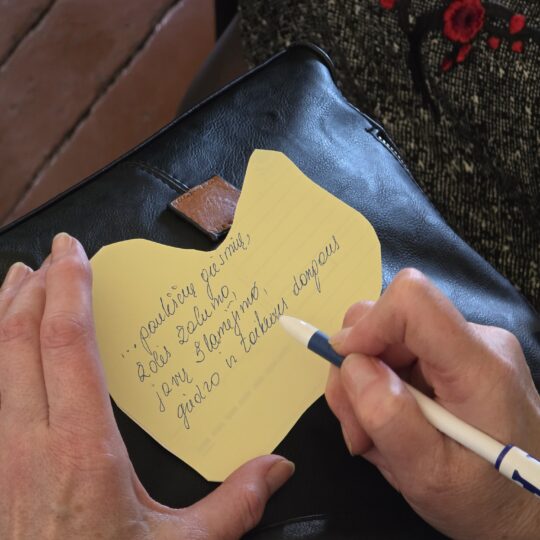 ... paukščių giesmių,
žolės žalumo,
javų šlamėjimo,
giedro ir taikaus dangaus